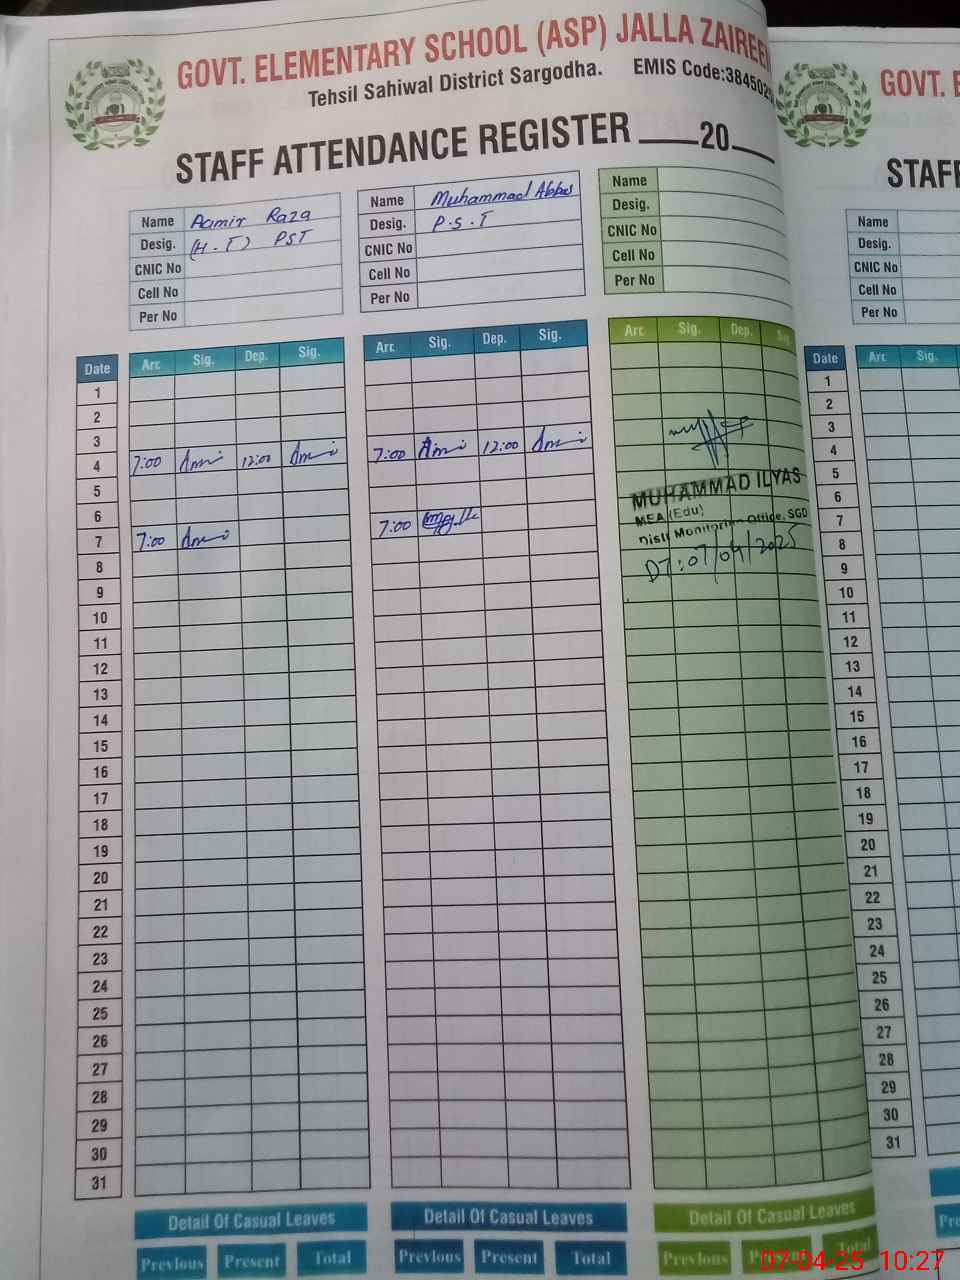 GOVT. ELEMENTARY SCHOOL (ASP) JALLA ZAIREEN
Tehsil Sahiwal District Sargodha. EMIS Code:384502
STAFF ATTENDANCE REGISTER ____20____
Name Aamir Raza
Desig. (H.T) PST
CNIC No
Cell No
Per No
Name Muhammad Abbas
Desig. P.S.T
CNIC No
Cell No
Per No
Name
Desig.
CNIC No
Cell No
Per No
Date Arr. Sig. Dep. Sig. Arr. Sig. Dep. Sig. Arr. Sig. Dep. Sig.
1
2
3
4 7:00 12:00 7:00 12:00
5
6
7 7:00 7:00
8
9
10
11
12
13
14
15
16
17
18
19
20
21
22
23
24
25
26
27
28
29
30
31
MUHAMMAD ILYAS
MEA (Edu)
Distt Monitoring Office, SGD
DT:07/04/2025
Detail Of Casual Leaves Detail Of Casual Leaves Detail Of Casual Leaves
Previous Present Total Previous Present Total Previous Present Total
GOVT. E
STAFF
Name
Desig.
CNIC No
Cell No
Per No
Date Arr. Sig.
1
2
3
4
5
6
7
8
9
10
11
12
13
14
15
16
17
18
19
20
21
22
23
24
25
26
27
28
29
30
31
Pre
07-04-25 10:27